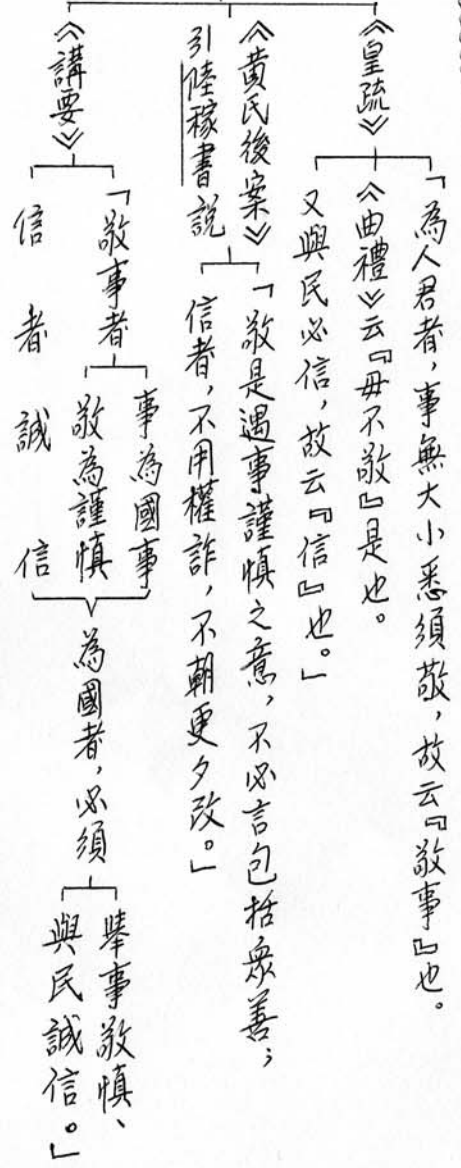 《皇疏》
「為人君者，事無大小悉須敬，故云『敬事』也。
《曲禮》云『毋不敬』是也。
又與民必信，故云『信』也。」
《黃氏後案》
引陸稼書說
「敬是遇事謹慎之意，不必言包括眾善；
信者，不用權詐，不朝更夕改。」
《講要》
「敬事者
事為國事
敬為謹慎
信者誠信
為國者，必須
舉事敬慎、
與民誠信。」